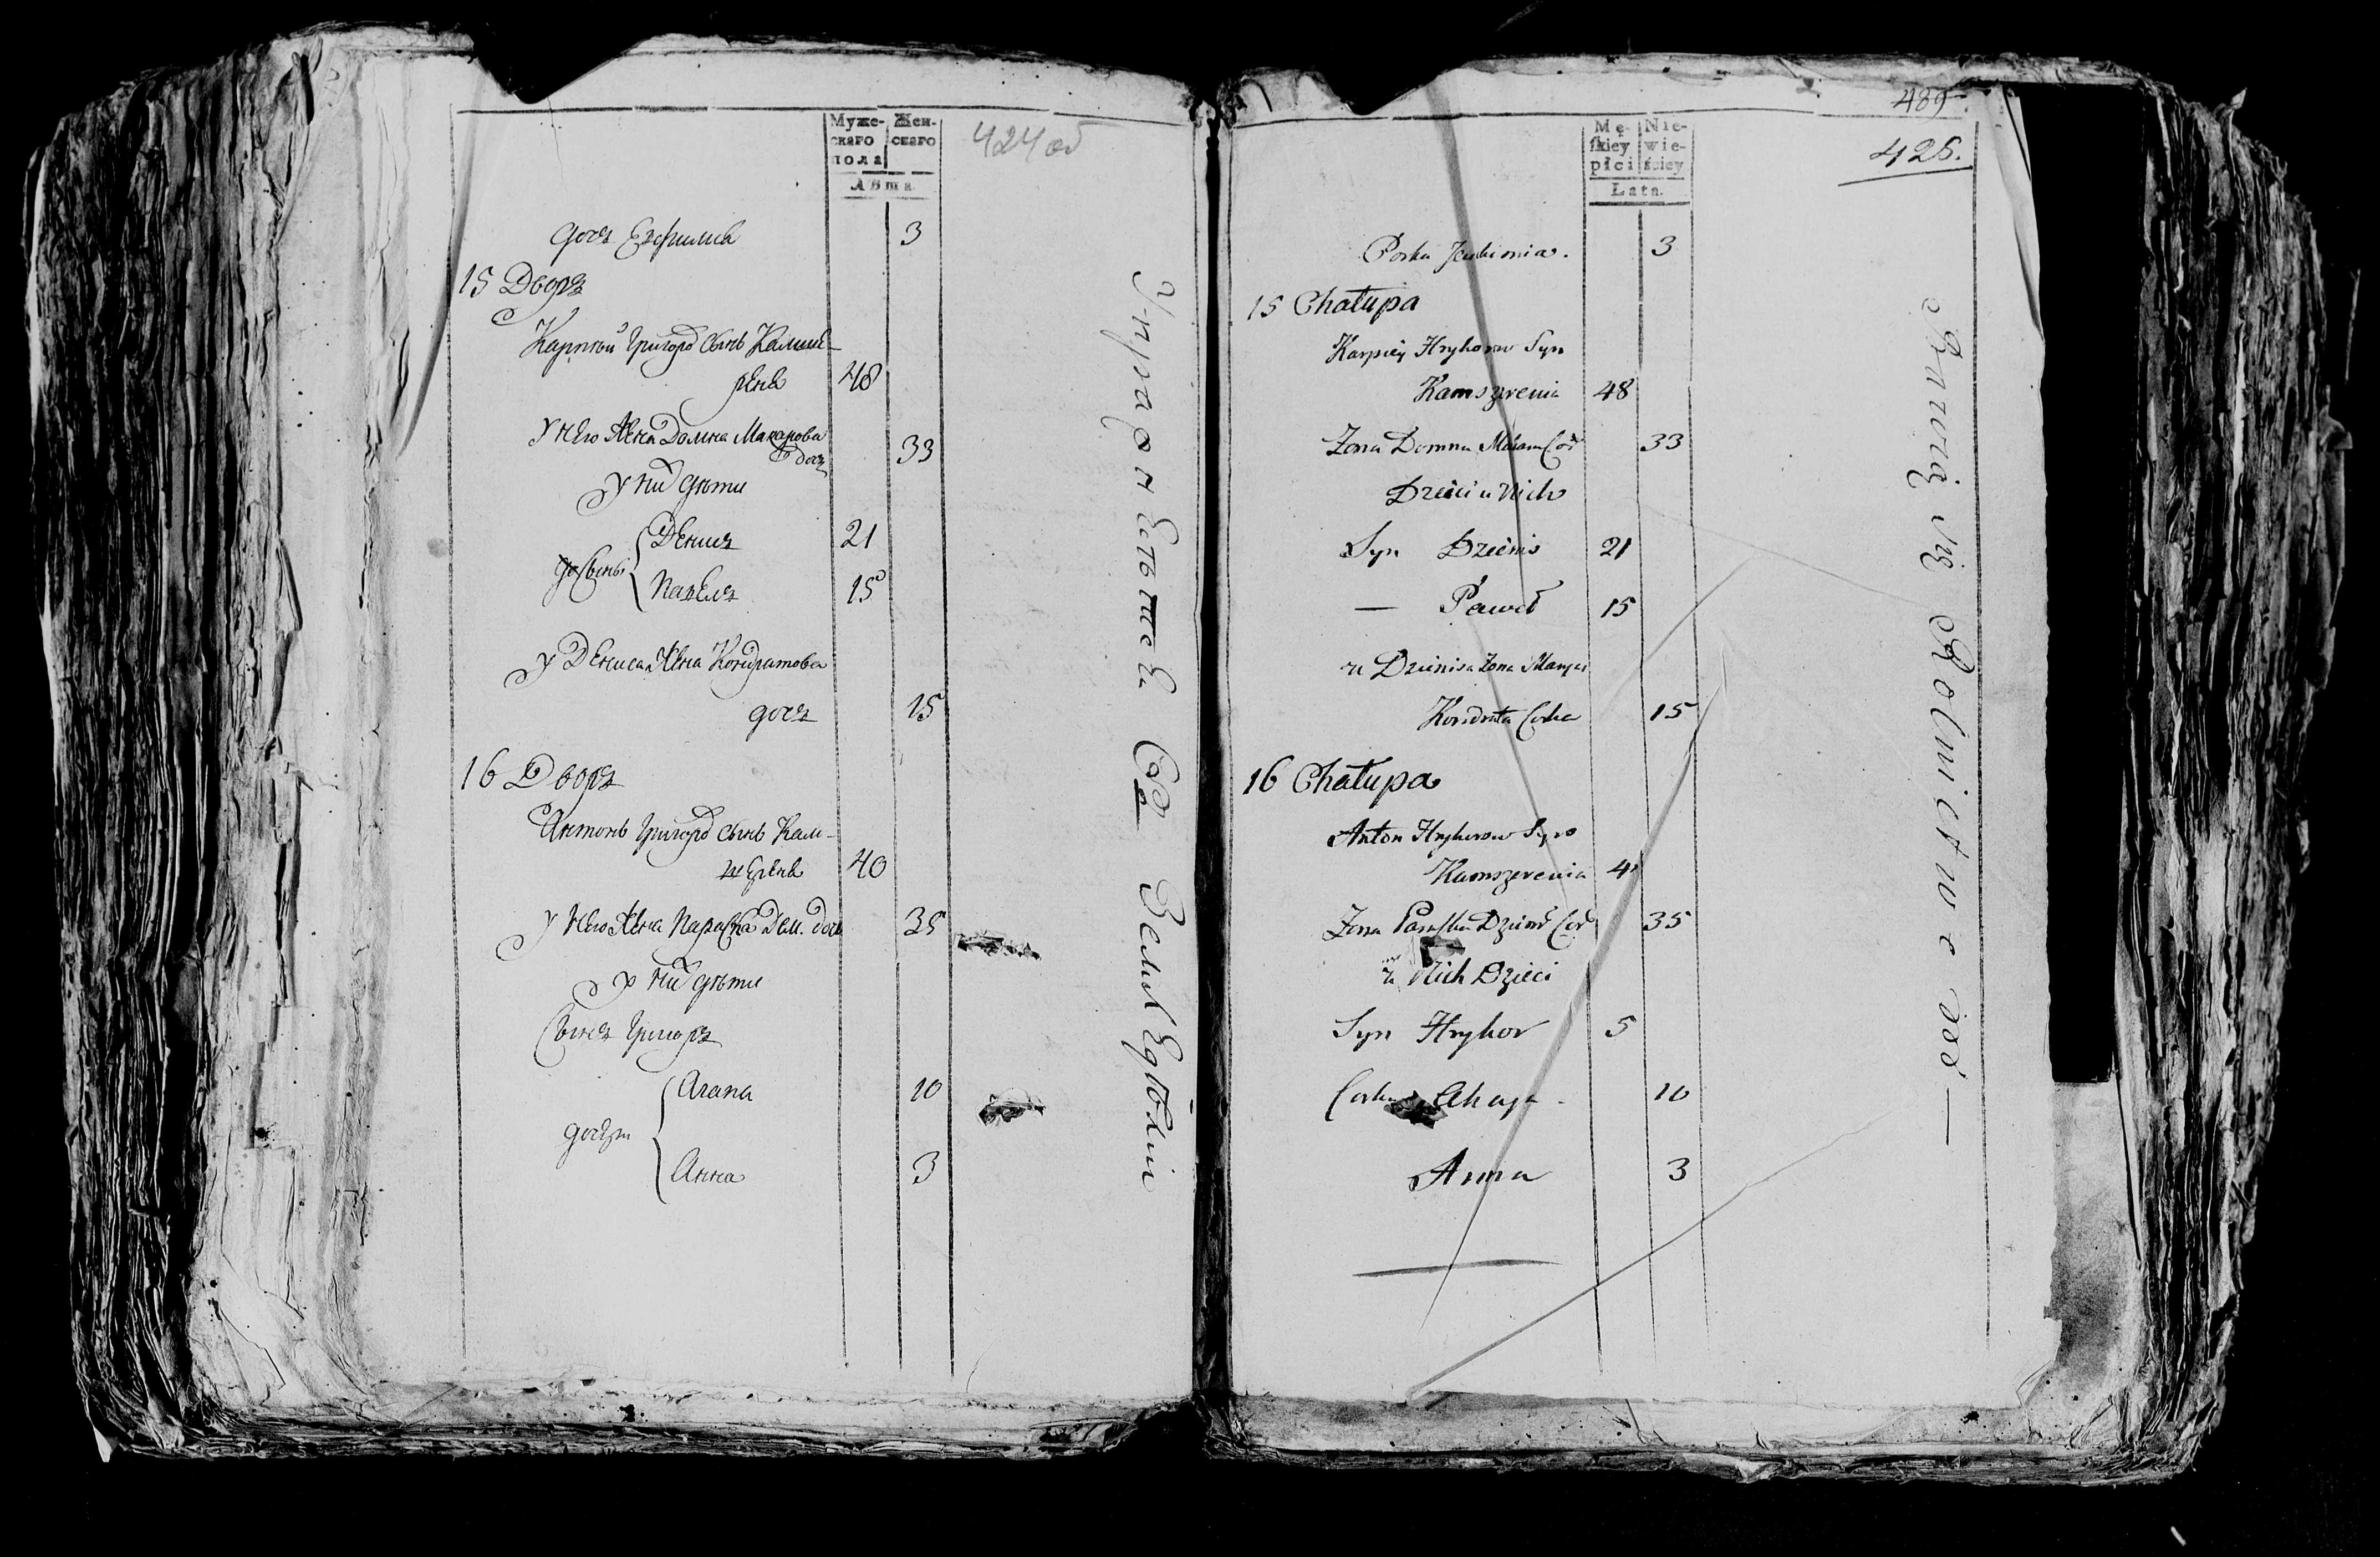 Муже-
скаго
пола
Жен-
скаго
Лѣта
424 об
дочь Евфимиа 3
15 Дворъ
Карпѣй Григоров сынъ Камше-
рена 48
У него жена Домна Макарова
дочь 33
У них дѣти
сыны { Денисъ 21
Павелъ 15
У Дениса жена Кондратова
дочь 15
16 Дворъ
Антонъ Григоров сынъ Кам-
шерена 40
У него жена Параска Дем. дочь 35
У них дѣти
Сынъ Григоръ
дочери { Агапа 10
Анна 3
Упражняется в Земледѣлии
489
425.
Mę-
skiey
płci
Nie-
wie-
ściey
Lata.
Corka Jewhimia. 3
15 Chałupa
Karpiey Hryhorow Syn
Kamszerenia 48
Zona Domna Cor 33
Dzieci u Nich
Syn Dzienis 21
— Paweł 15
u Dzienisa Zona
Kondrata Corka 15
16 Chałupa
Anton Hryhorow Syn
Kamszerenia 4
Zona Paraska Cor 35
u Nich Dzieci
Syn Hryhor 5
Corka Ahapa 10
Anna 3
Bawią się Rolnictwe